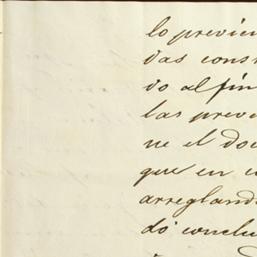 lo previn
das cons
do al fin
las preve
ne el do
que en c
arregland
dó conclu